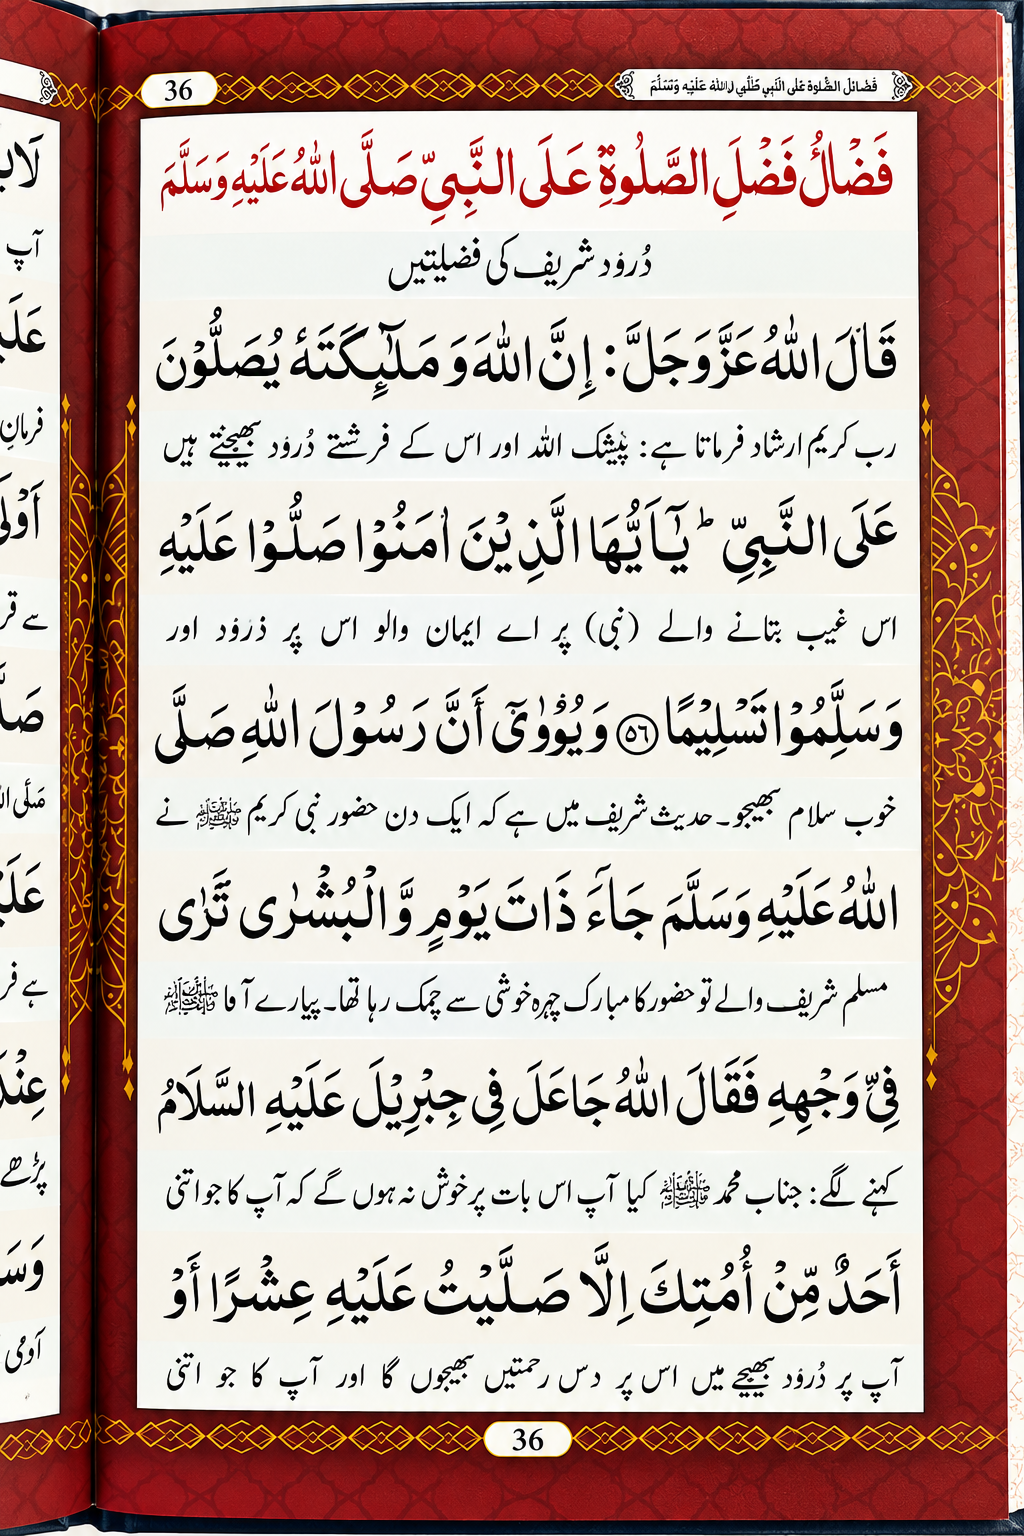 36
فَضَائِل الصَّلٰوة عَلَى النَّبِي صَلَّى اللهُ عَلَيْهِ وَسَلَّمَ
فَضْالُ فَضْلِ الصَّلٰوةِ عَلَى النَّبِيِّ صَلَّى اللهُ عَلَيْهِ وَسَلَّمَ
دُرود شریف کی فضیلتیں
قَالَ اللهُ عَزَّوَجَلَّ: إِنَّ اللهَ وَ مَلٰٓئِكَتَهٗ يُصَلُّوْنَ
رب کریم ارشاد فرماتا ہے: بیشک اللہ اور اس کے فرشتے دُرود بھیجتے ہیں
عَلَى النَّبِيِّ ؕ يٰۤاَيُّهَا الَّذِيْنَ اٰمَنُوْا صَلُّوْا عَلَيْهِ
اس غیب بتانے والے (نبی) پر اے ایمان والو اس پر ذرود اور
وَسَلِّمُوْا تَسْلِيْمًا ۵۶ وَيُؤْوٰىٓ أَنَّ رَسُوْلَ اللهِ صَلَّى
خوب سلام بھیجو۔ حدیث شریف میں ہے کہ ایک دن حضور نبی کریم ﷺ نے
اللهُ عَلَيْهِ وَسَلَّمَ جَاءَ ذَاتَ يَوْمٍ وَّ الْبُشْرٰى تَرٰى
مسلم شریف والے تو حضور کا مبارک چہرہ خوشی سے چمک رہا تھا۔ پیارے آقا ﷺ
فِيْ وَجْهِهٖ فَقَالَ اللهُ جَاعَلَ فِي جِبْرِيْلَ عَلَيْهِ السَّلَامُ
کہنے لگے: جناب محمد ﷺ کیا آپ اس بات پر خوش نہ ہوں گے کہ آپ کا جو اتنی
أَحَدٌ مِّنْ أُمُتِكَ اِلَّا صَلَّيْتُ عَلَيْهِ عِشْرًا أَوْ
آپ پر دُرود بھیجے میں اس پر دس رحمتیں بھیجوں گا اور آپ کا جو اتنی
36